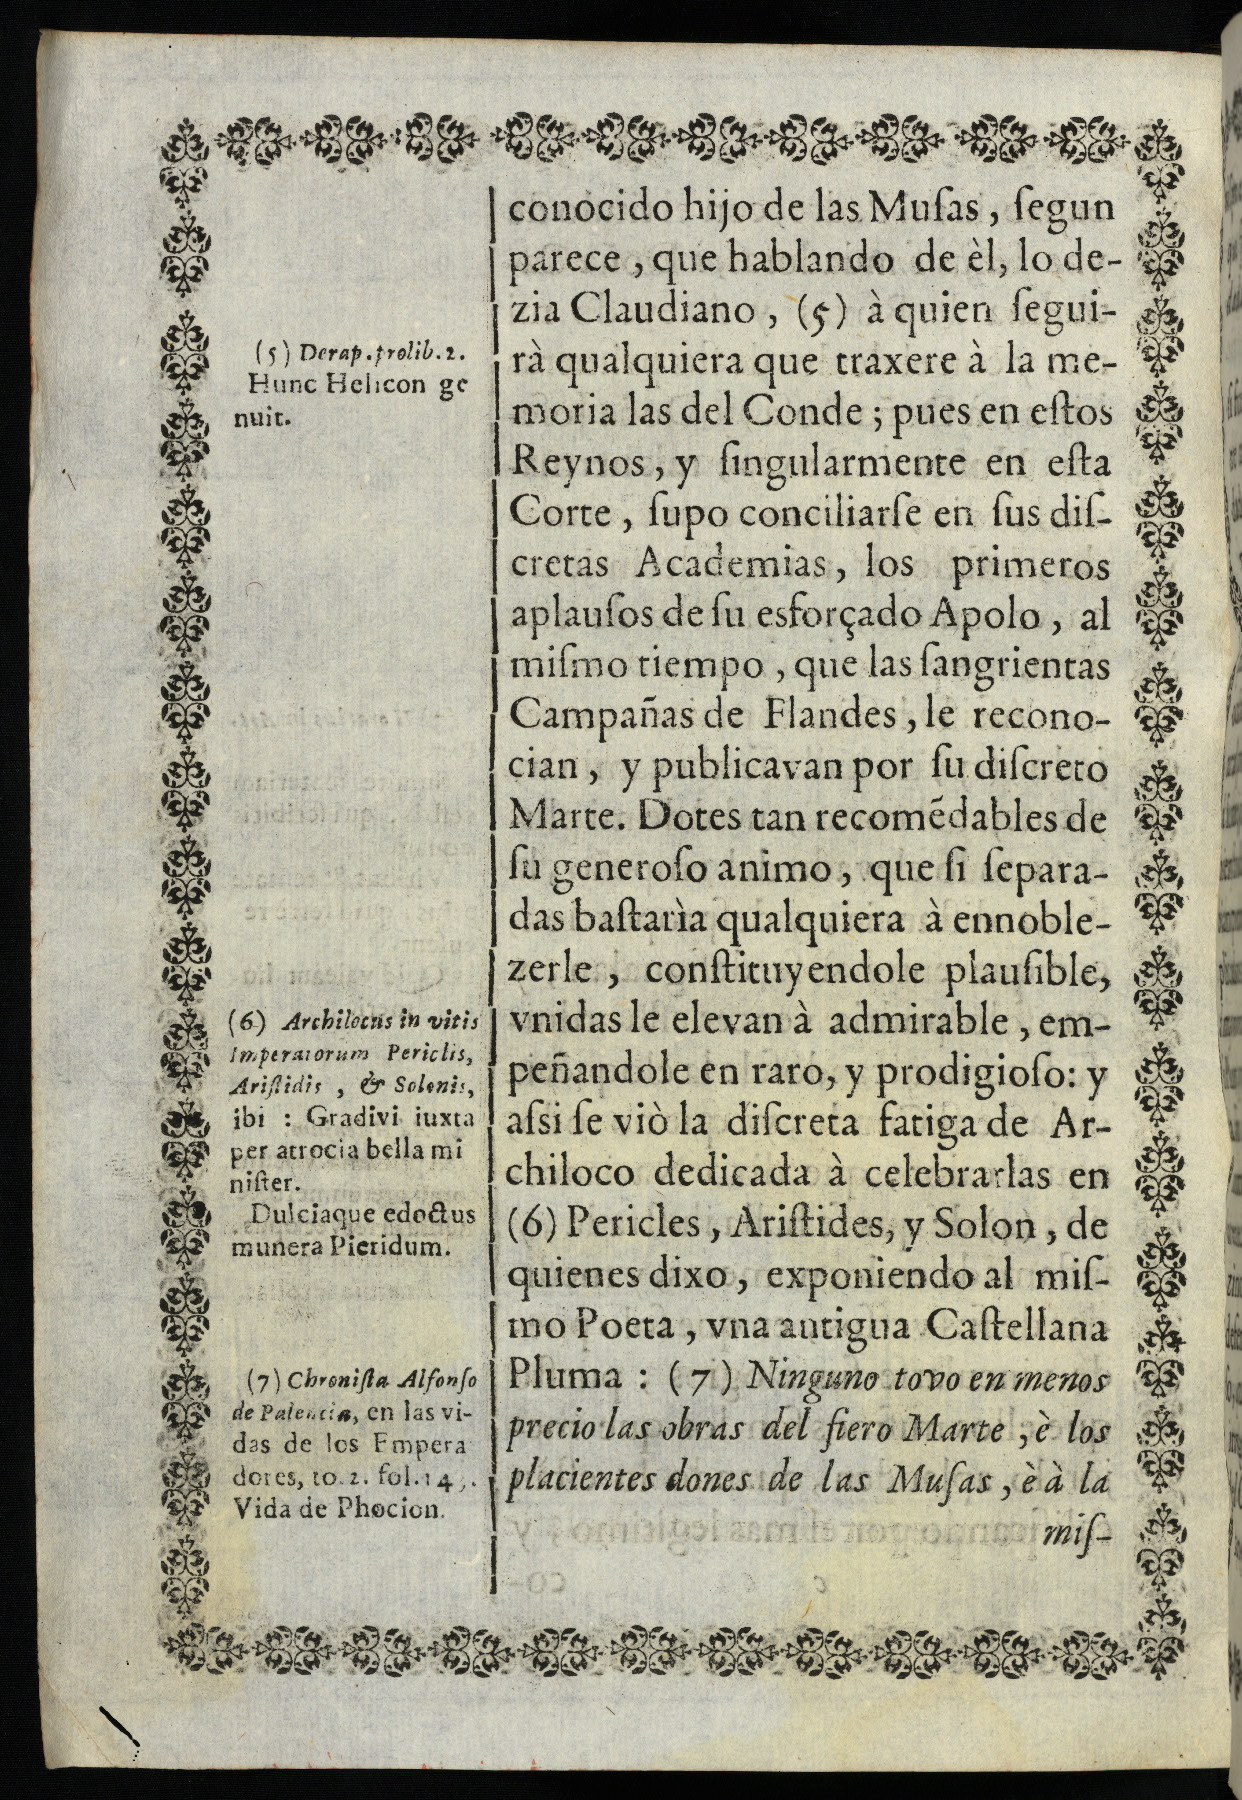 conocido hijo de las Muſas, ſegun
parece, que hablando de èl, lo de-
zia Claudiano, (5) à quien ſegui-
rà qualquiera que traxere à la me-
moria las del Conde; pues en eſtos
Reynos, y ſingularmente en eſta
Corte, ſupo conciliarſe en ſus diſ-
cretas Academias, los primeros
aplauſos de ſu esforçado Apolo, al
miſmo tiempo, que las ſangrientas
Campañas de Flandes, le recono-
cian, y publicavan por ſu diſcreto
Marte. Dotes tan recomẽdables de
ſu generoſo animo, que ſi ſepara-
das baſtarìa qualquiera à ennoble-
zerle, conſtituyendole plauſible,
vnidas le elevan à admirable, em-
peñandole en raro, y prodigioſo: y
aſsi ſe viò la diſcreta fatiga de Ar-
chiloco dedicada à celebrarlas en
(6) Pericles, Ariſtides, y Solon, de
quienes dixo, exponiendo al miſ-
mo Poeta, vna antigua Caſtellana
Pluma: (7) Ninguno tovo en menos
precio las obras del fiero Marte, è los
placientes dones de las Muſas, è à la
miſ-
(5) Derap. prolib. 2.
Hunc Helicon ge
nuit.
(6) Archilocus in vitis
Imperatorum Periclis,
Ariſtidis, & Solonis,
ibi : Gradivi iuxta
per atrocia bella mi
niſter.
Dulciaque edoctus
munera Pieridum.
(7) Chroniſta Alfonſo
de Palencia, en las vi-
das de los Empera
dores, to. 2. fol.
Vida de Phocion.